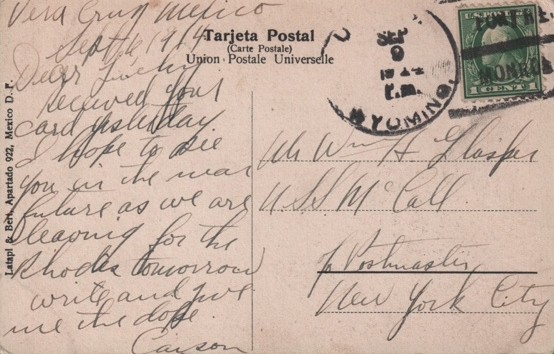 Vera Cruz Mexico
Sept 6 1914
Dear
received your
card yesterday
I hope to see
you in the near
future as we are
leaving for the
Rhodes tomorrow
write and give
me the dope.
Carson
Latapi & Bert, Apartado 922, Mexico D. F.
Tarjeta Postal
(Carte Postale)
Union Postale Universelle
SEP
9
1914
P.M.
WYOMING.
U.S. POSTAGE
1 CENT 1
Mr Wm H. Glasier
U.S.S. McCall
Postmaster
New York City